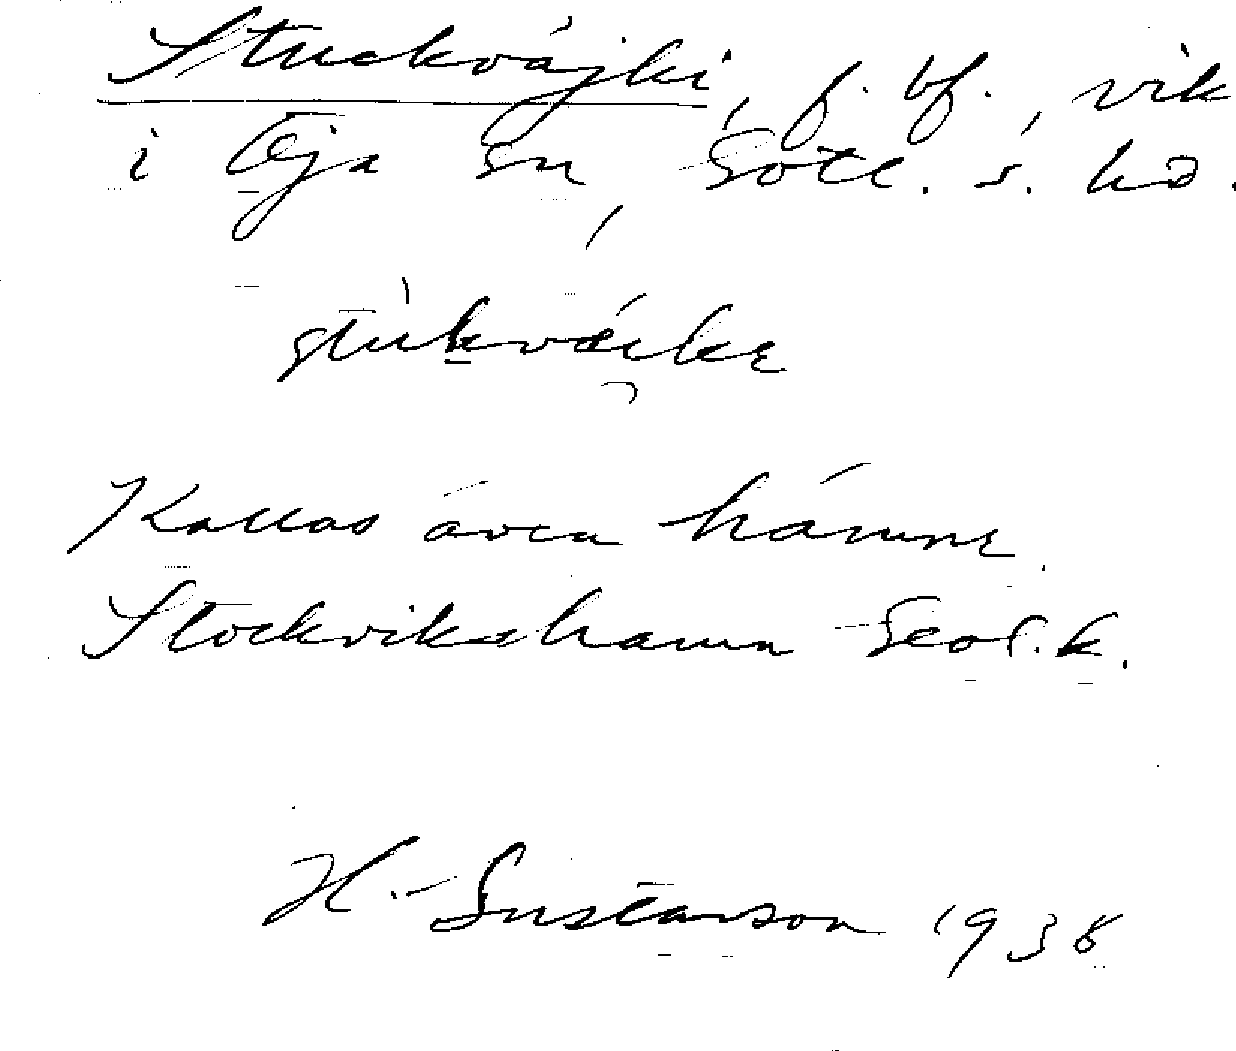 Stuckväjki, f. bf., vik
i Öja sn, Gotl. s. hd.
stùkvä́ike
Kallas även hámne.
Stockvikehamn Geol. k.
H. Gustavson 1938